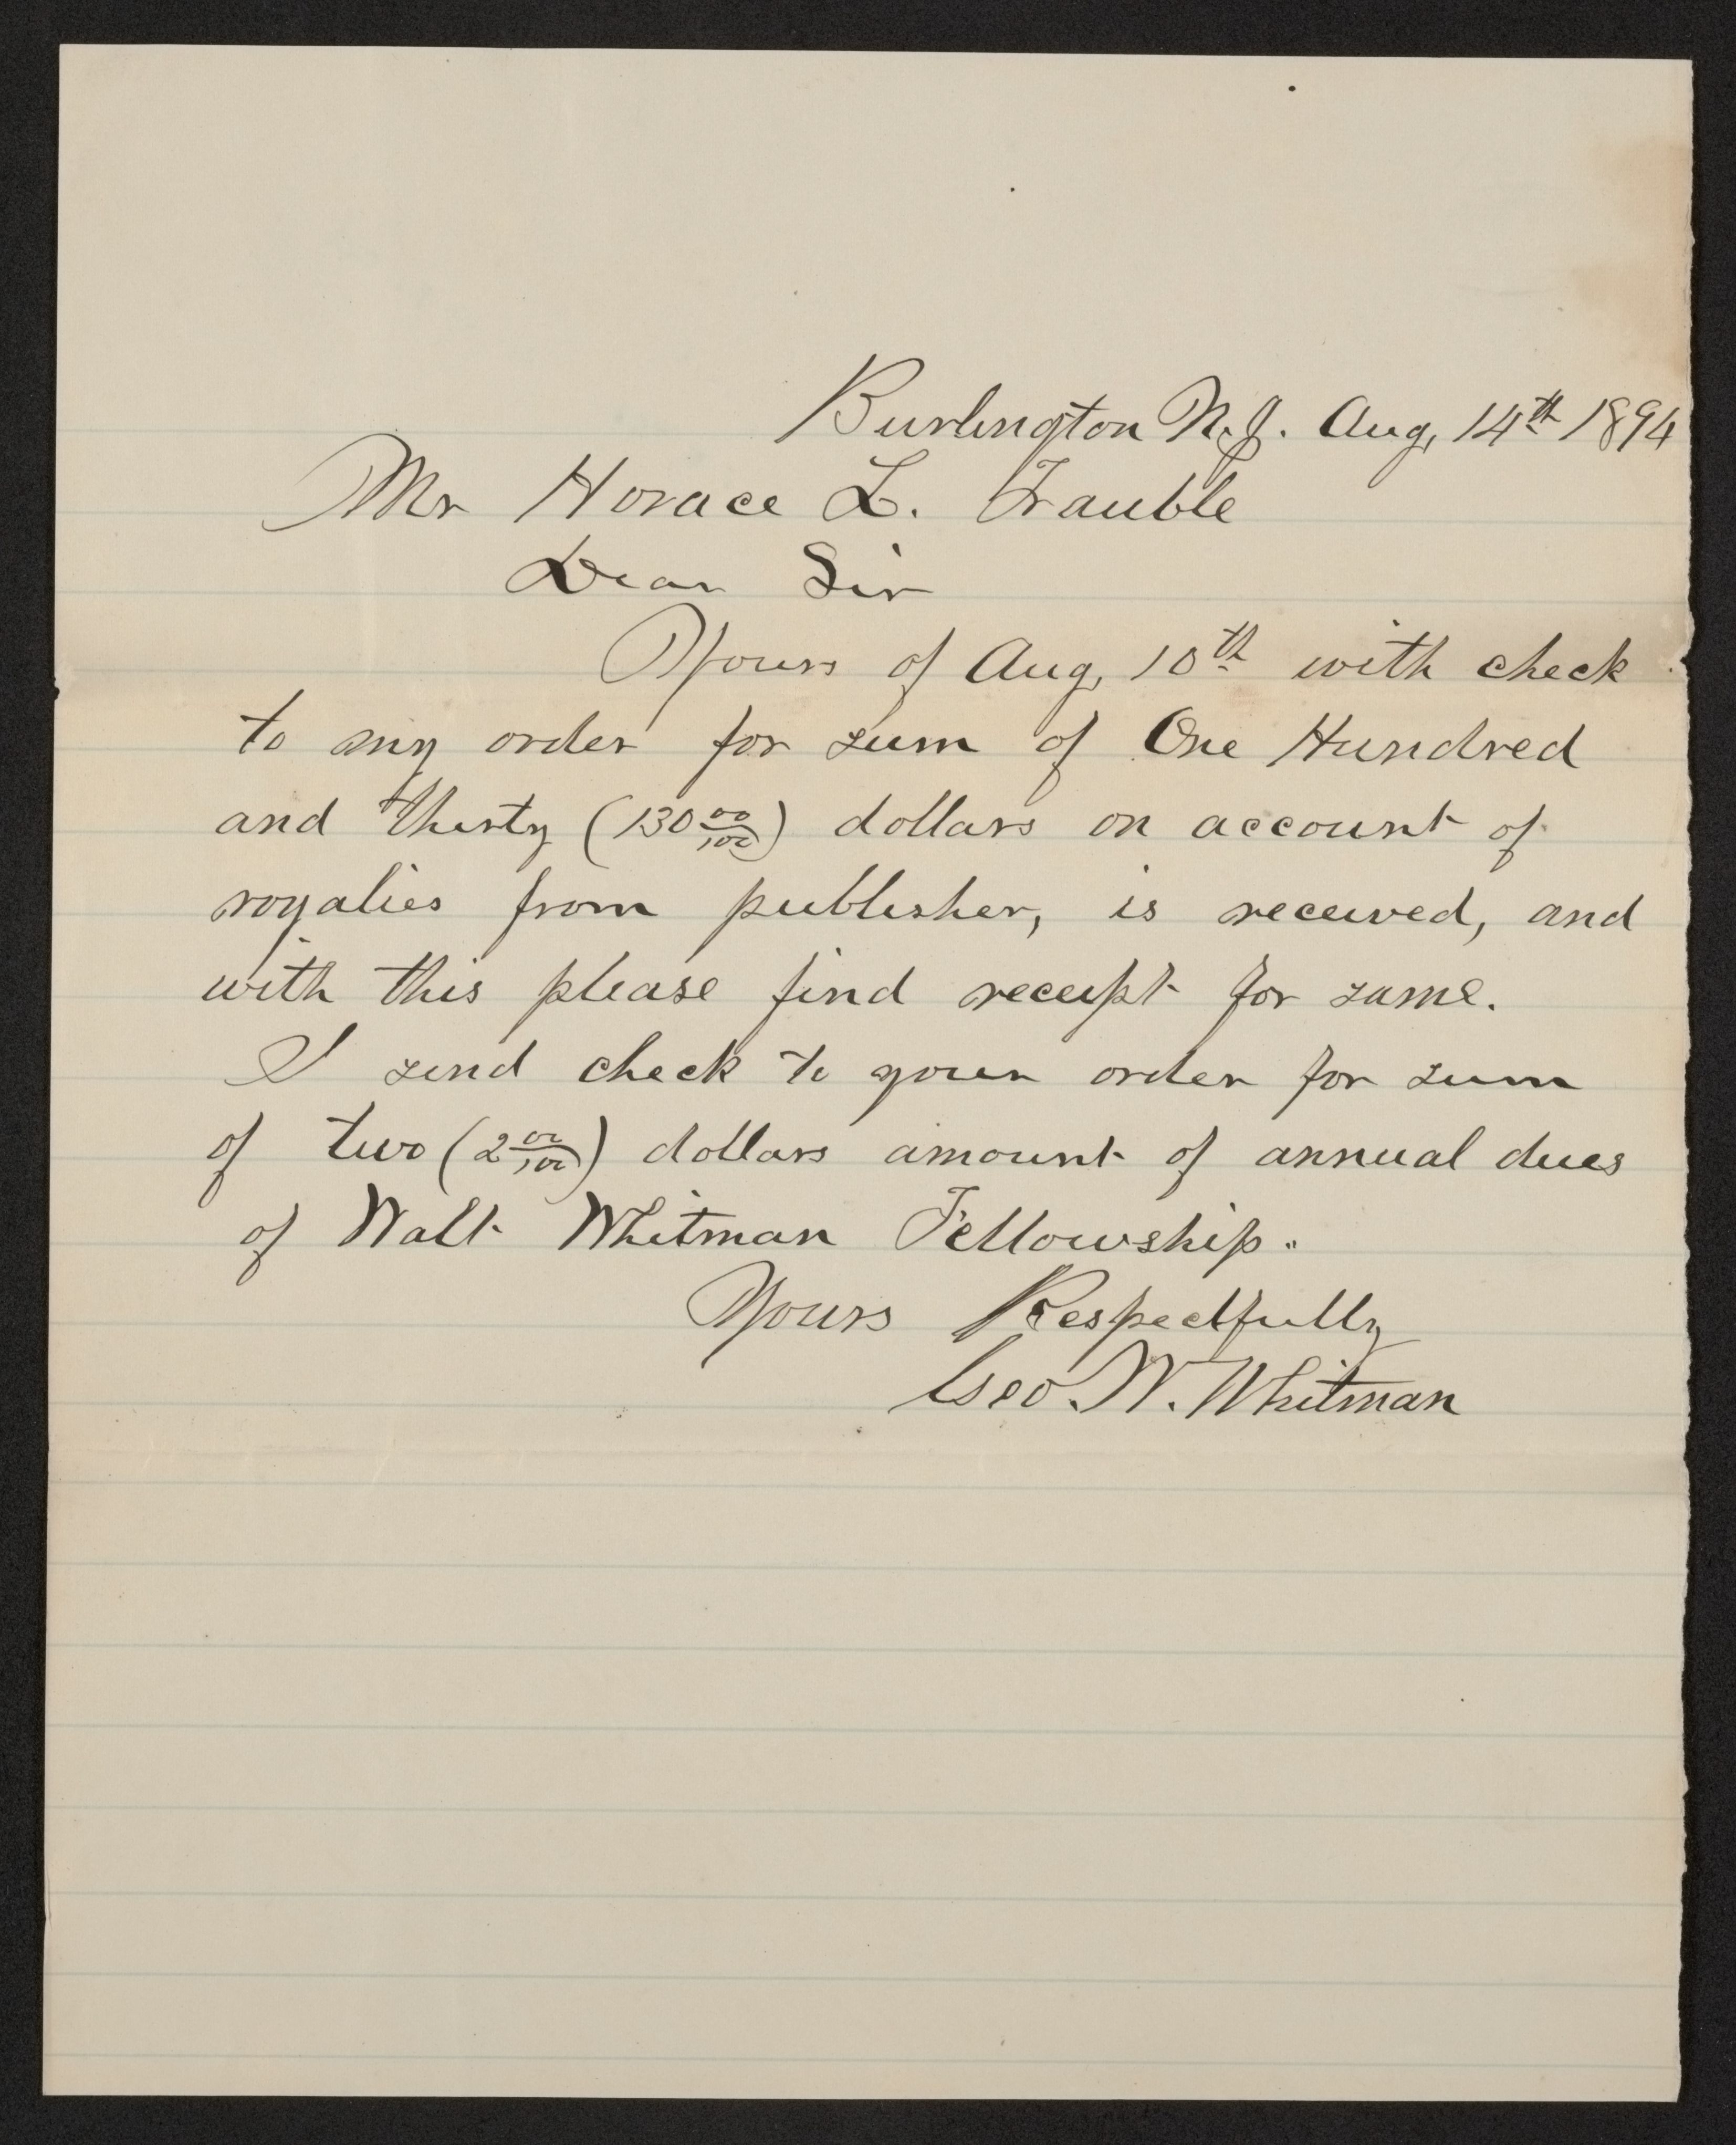 Burlington N.J. Aug, 14th 1894
Mr Horace L. Trauble
Dear Sir
Yours of Aug, 10th with check
to my order for sum of One Hundred
and thirty (130 00/100) dollars on account of
royalies from publisher, is received, and
with this please find receipt for same.
I send check to your order for sum
of two (2 00/100) dollars amount of annual dues
of Walt Whitman Fellowship.
Yours Respectfully
Geo. W. Whitman